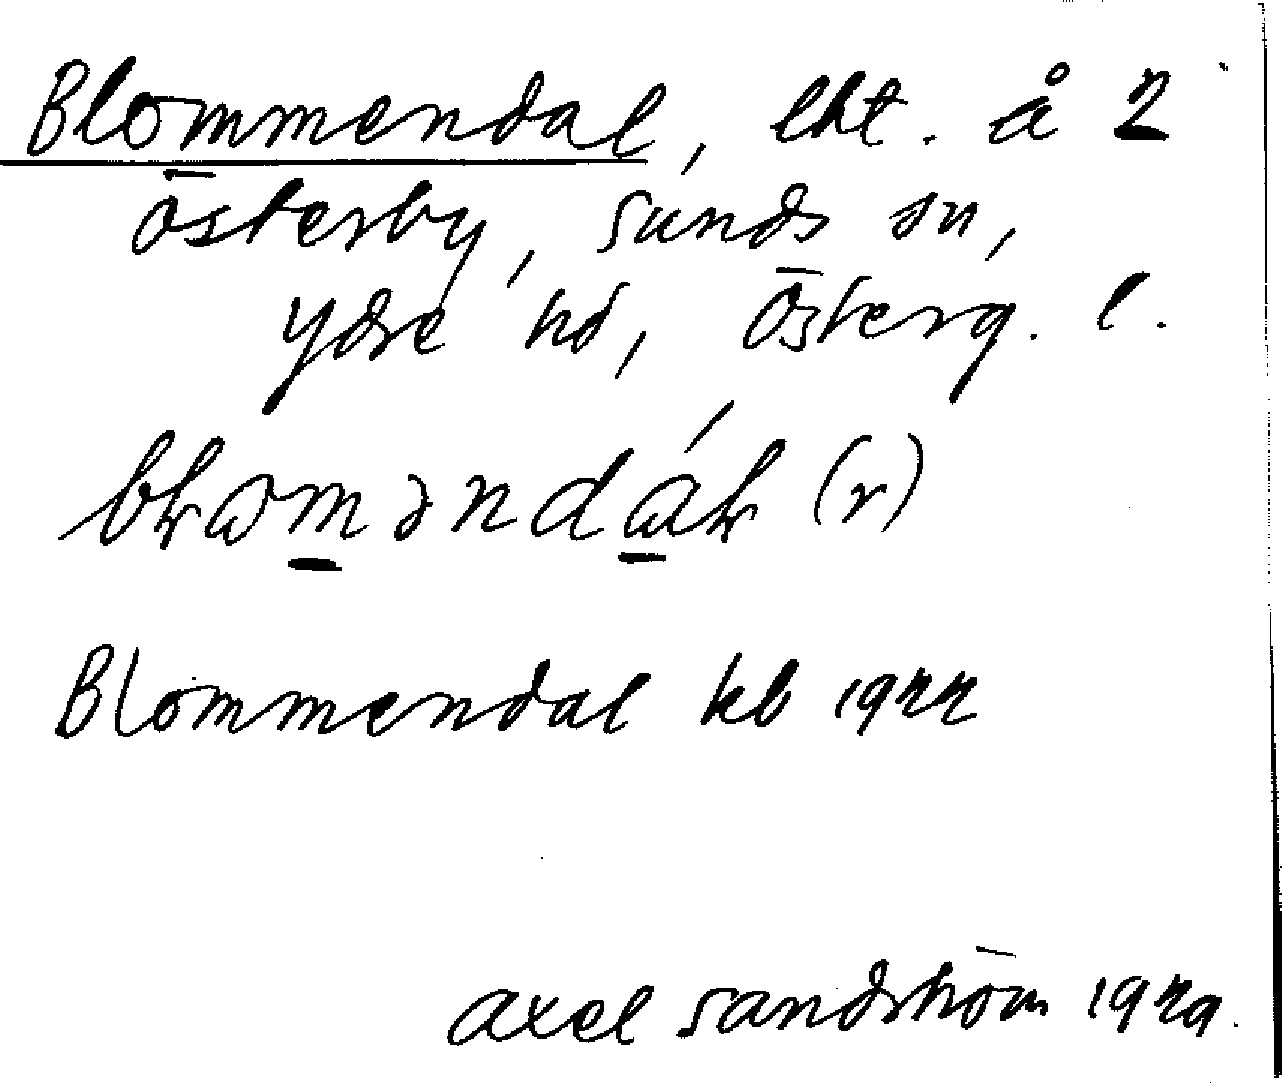 Blommendal, lht. å 2
Österby, Sunds sn,
Ydre hd, Österg. l.
(r)
Blommendal kb 1922
Axel Sandström 1929.